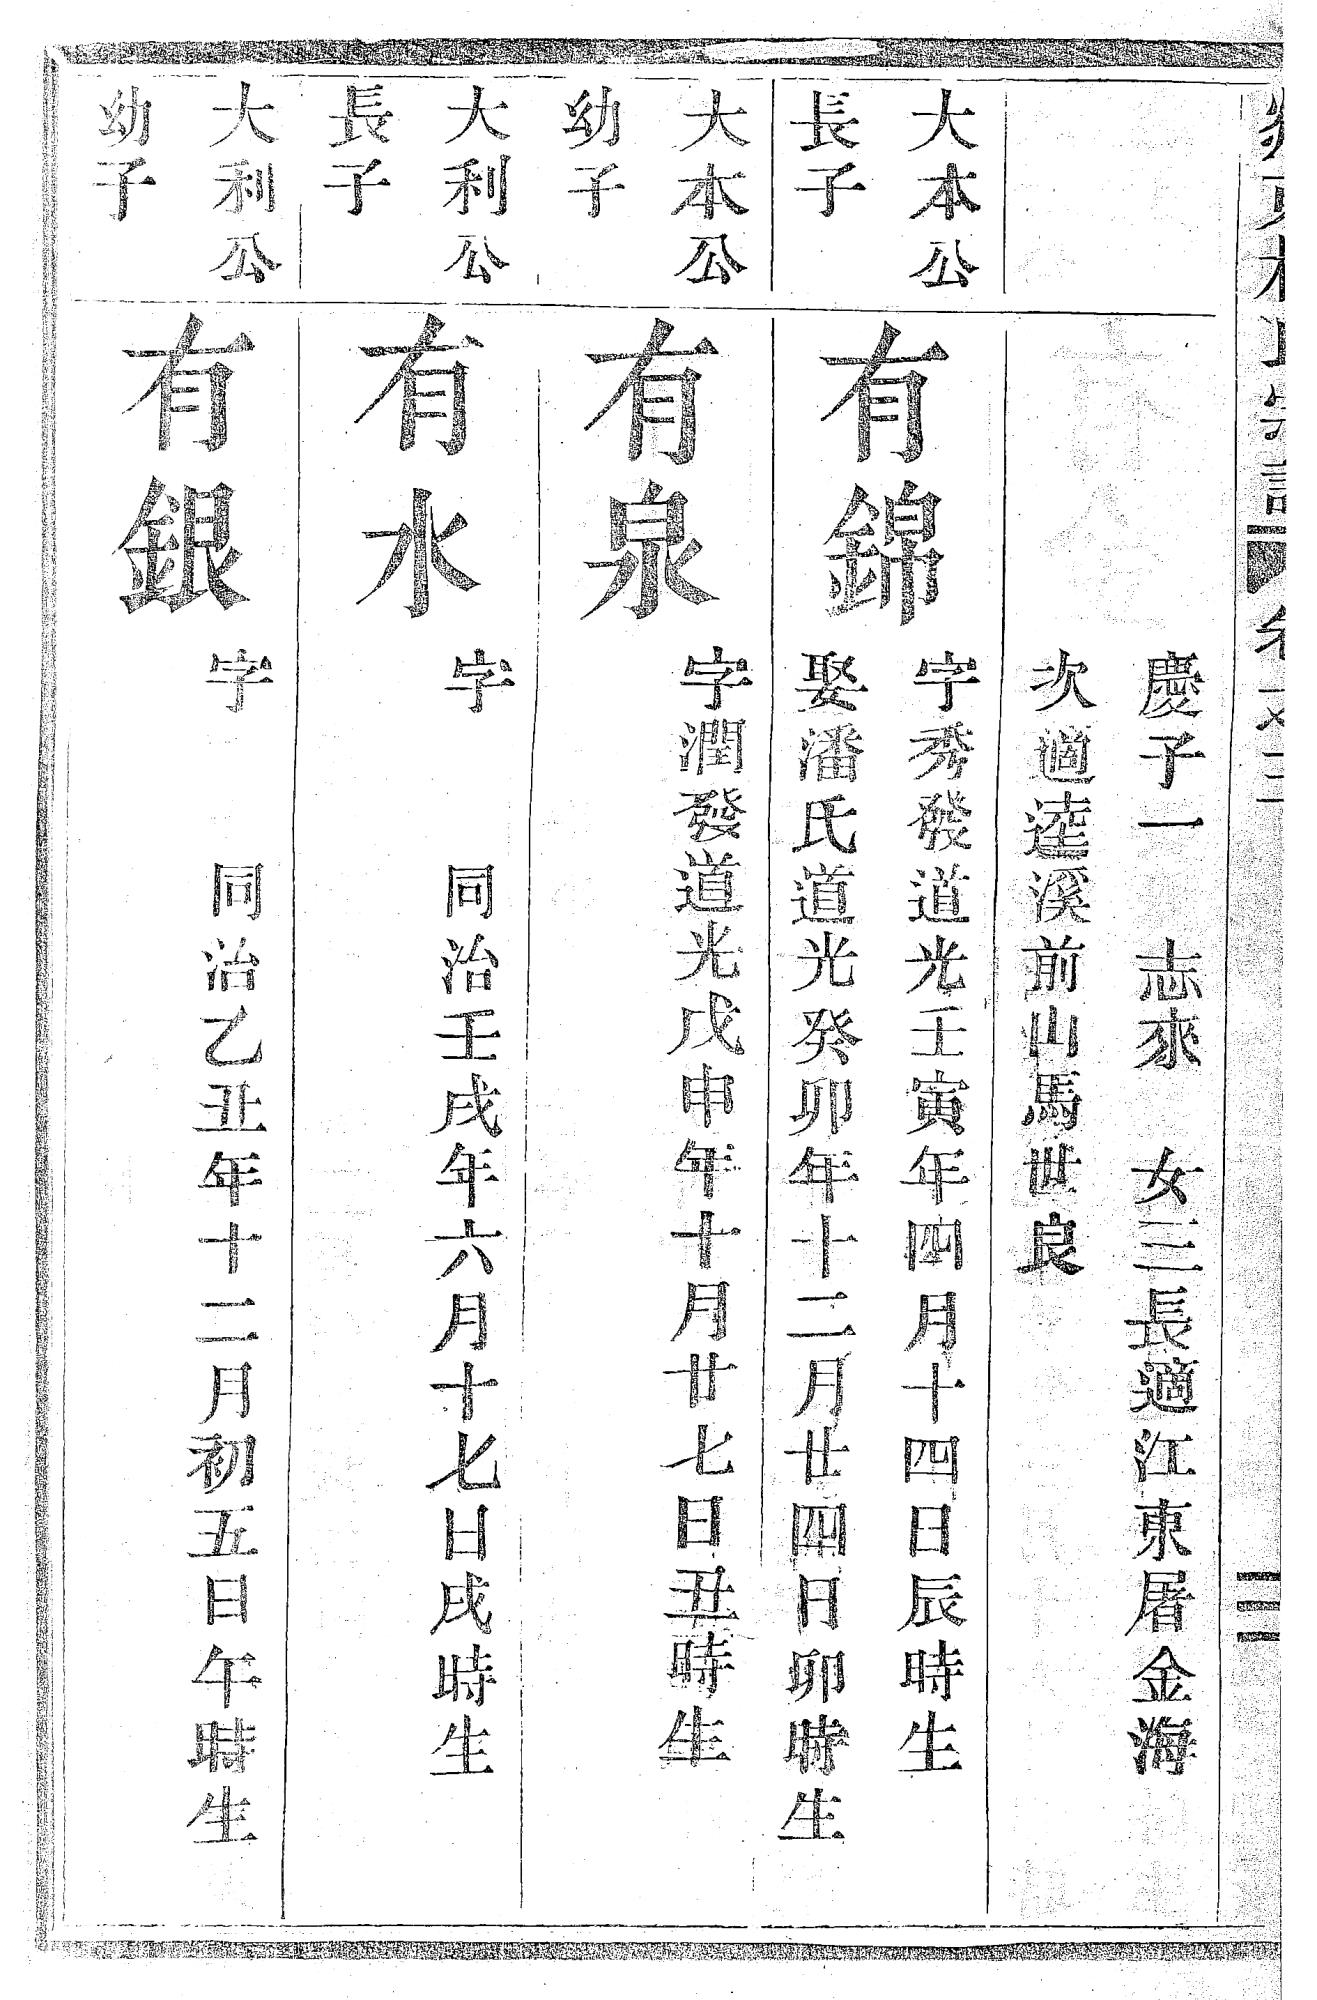 慶子一　志來　女三長適江東屠金海
次適逵溪前山馬世良
大本公
長子
有錦
字秀發道光壬寅年四月十四日辰時生
娶潘氏道光癸卯年十二月廿四日卯時生
大本公
幼子
有泉
字潤發道光戊申年十月廿七日丑時生
大利公
長子
有水
字　同治壬戌年六月十七日戌時生
大利公
幼子
有銀
字　同治乙丑年十二月初五日午時生
三